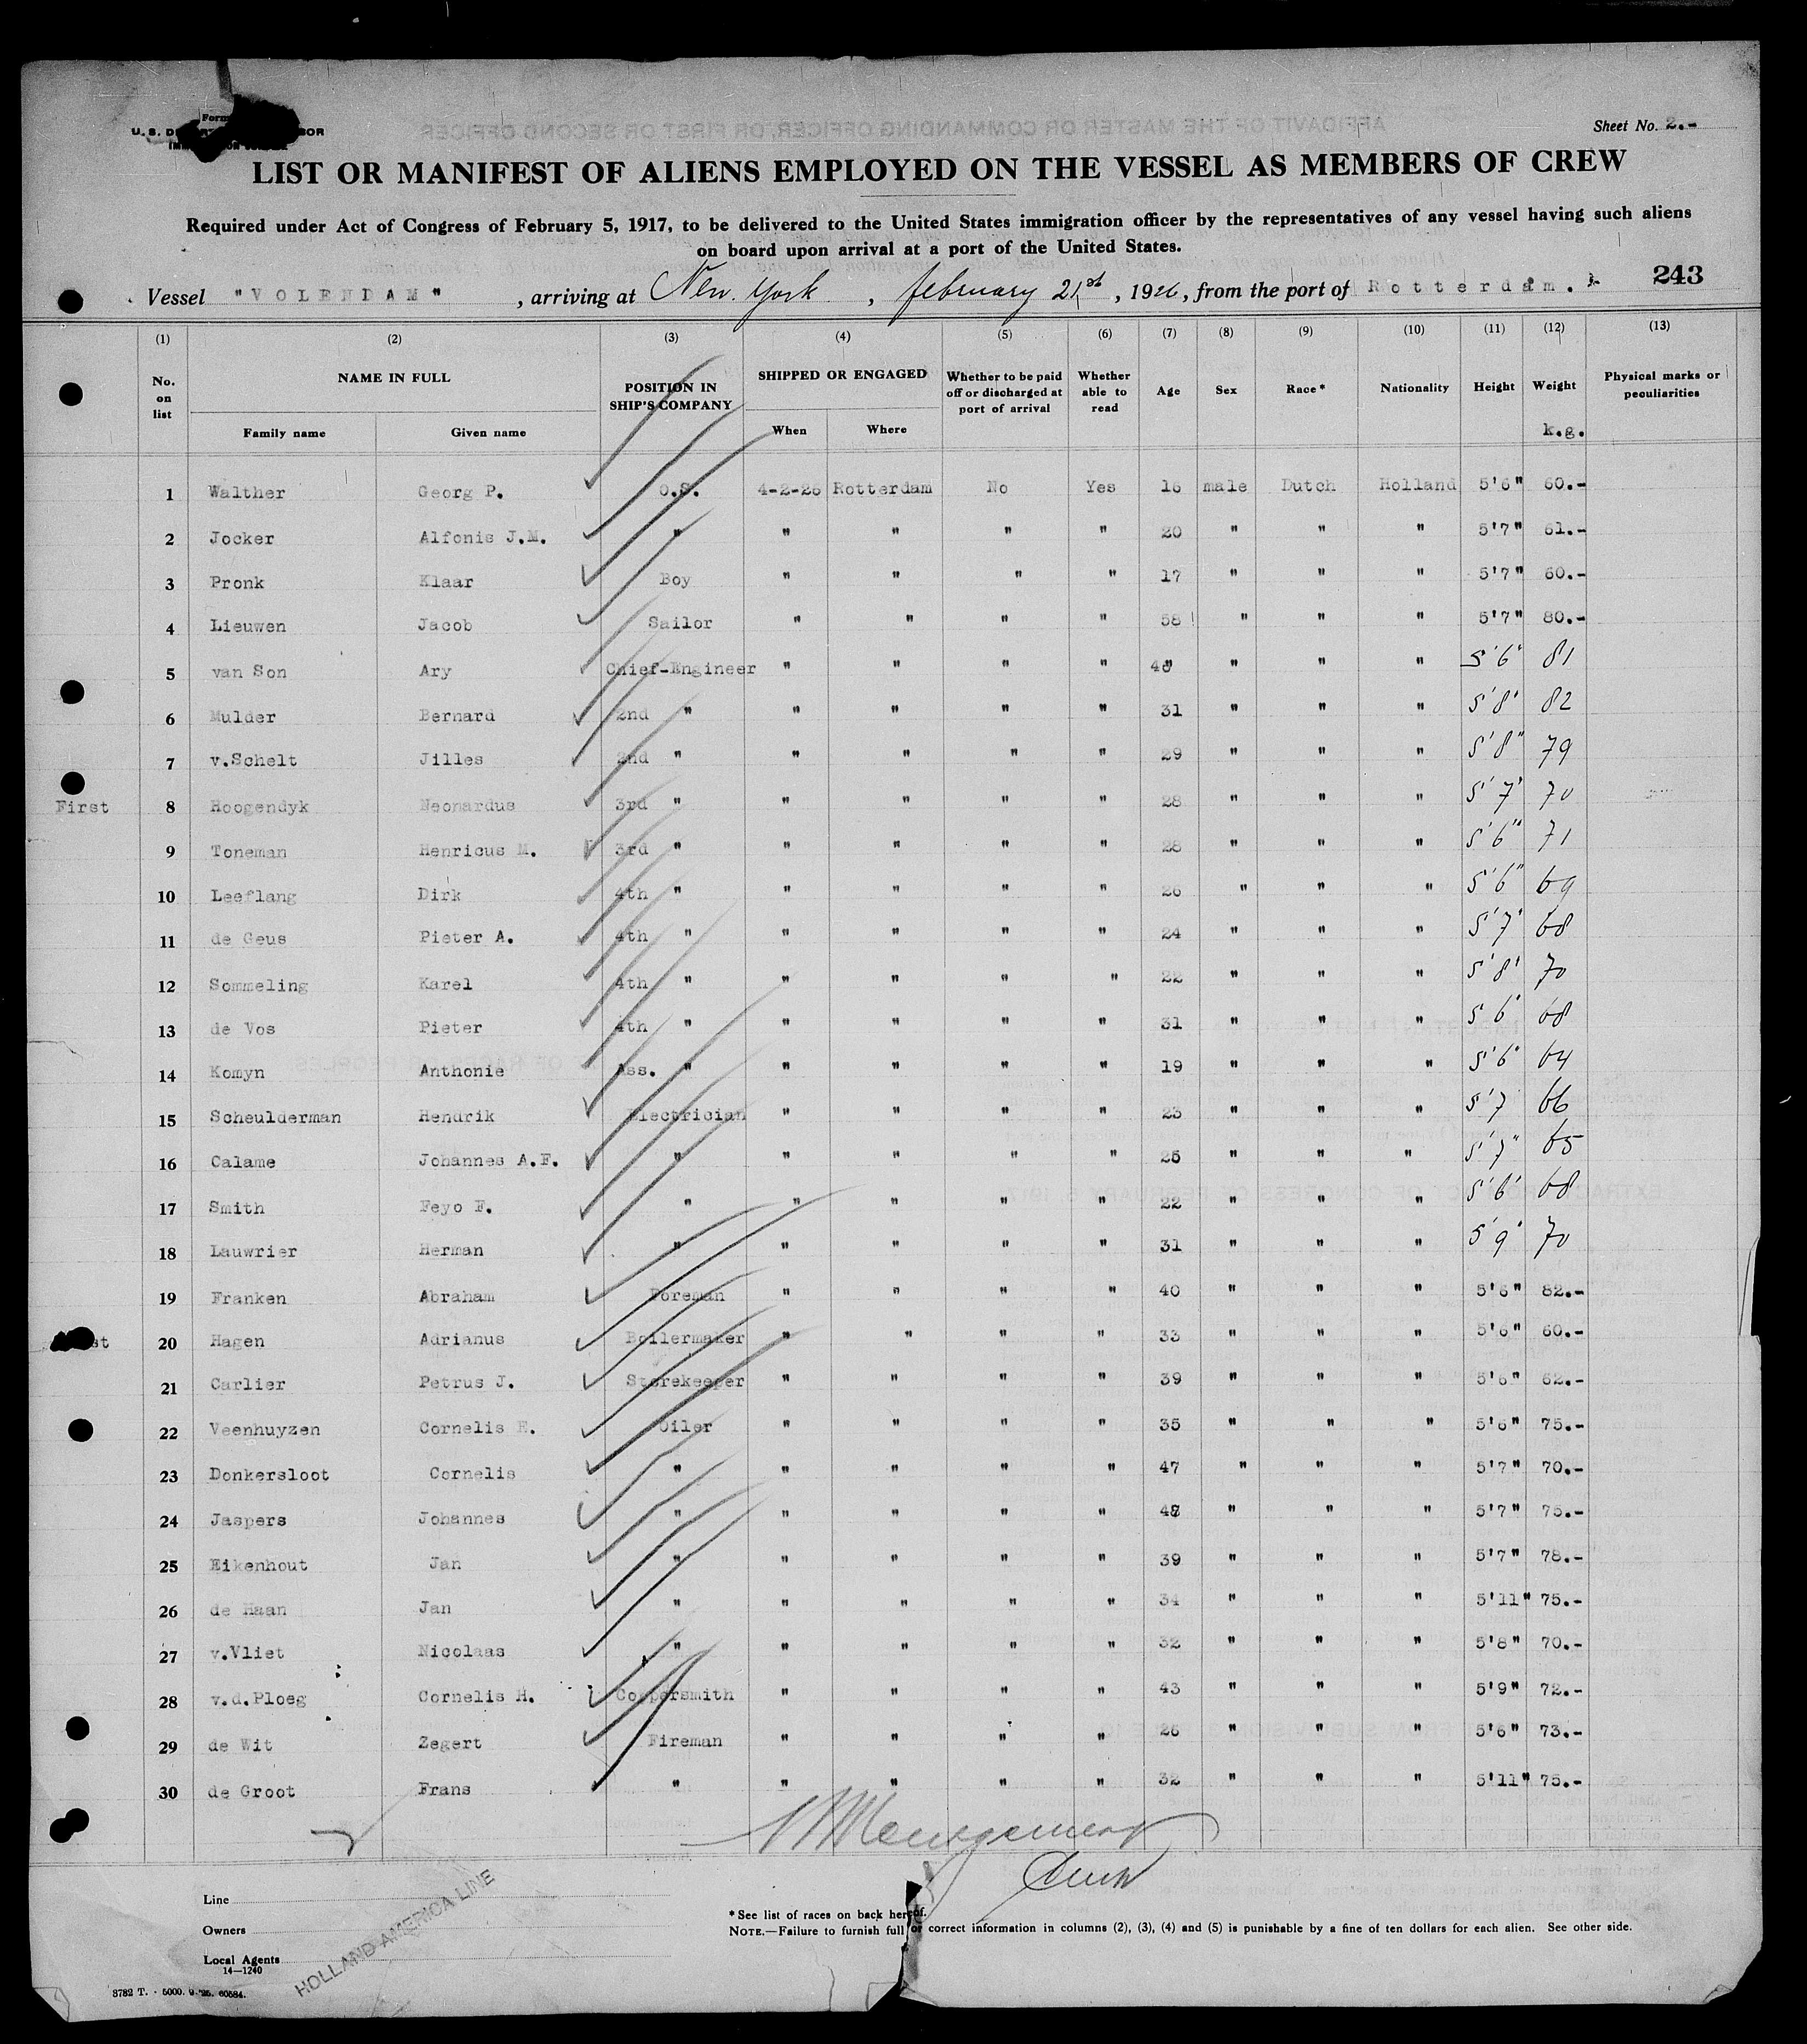 Form
U. S. DEPARTMENT OF LABOR
Sheet No. 2.-
LIST OR MANIFEST OF ALIENS EMPLOYED ON THE VESSEL AS MEMBERS OF CREW
Required under Act of Congress of February 5, 1917, to be delivered to the United States immigration officer by the representatives of any vessel having such aliens
on board upon arrival at a port of the United States.
243
Vessel "VOLENDAM", arriving at New York, february 21st, 1926, from the port of Rotterdam.
(1) (2) (3) (4) (5) (6) (7) (8) (9) (10) (11) (12) (13)
No. on list NAME IN FULL POSITION IN SHIP'S COMPANY SHIPPED OR ENGAGED Whether to be paid off or discharged at port of arrival Whether able to read Age Sex Race* Nationality Height Weight Physical marks or peculiarities
Family name Given name When Where k.g.
1 Walther Georg P. O.S. 4-2-26 Rotterdam No Yes 16 male Dutch Holland 5'6" 60.-
2 Jocker Alfonis J.M. " " " " " 20 " " " 5'7" 61.-
3 Pronk Klaar Boy " " " " 17 " " " 5'7" 60.-
4 Lieuwen Jacob Sailor " " " " 58 " " " 5'7" 80.-
5 van Son Ary Chief-Engineer " " " " " " " 5'6" 81
6 Mulder Bernard 2nd " " " " " 31 " " " 5'8" 82
7 v.Schelt Jilles 2nd " " " " " 29 " " " 5'8" 79
First 8 Hoogendyk Neonardus 3rd " " " " " 28 " " " 5'7" 70
9 Toneman Henricus M. 3rd " " " " " 28 " " " 5'6" 71
10 Leeflang Dirk 4th " " " " " 26 " " " 5'6" 69
11 de Geus Pieter A. 4th " " " " " 24 " " " 5'7" 68
12 Sommeling Karel 4th " " " " " 22 " " " 5'8" 70
13 de Vos Pieter 4th " " " " " 31 " " " 5'6" 68
14 Komyn Anthonie Ass. " " " " " 19 " " " 5'6" 64
15 Scheulderman Hendrik Electrician " " " " 23 " " " 5'7 66
16 Calame Johannes A.F. " " " " " " " " 5'7" 65
17 Smith Feyo F. " " " " " 22 " " " 5'6" 68
18 Lauwrier Herman " " " " " 31 " " " 5'9" 70
19 Franken Abraham Foreman " " " " 40 " " " 5'6" 82.-
20 Hagen Adrianus Boilermaker " " " " 33 " " " 5'6" 60.-
21 Carlier Petrus J. Storekeeper " " " " 39 " " " 5'6" 62.-
22 Veenhuyzen Cornelis E. Oiler " " " " 35 " " " 5'6" 75.-
23 Donkersloot Cornelis " " " " " 47 " " " 5'7" 70.-
24 Jaspers Johannes " " " " " " " " 5'7" 75.-
25 Eikenhout Jan " " " " " 39 " " " 5'7" 78.-
26 de Haan Jan " " " " " 34 " " " 5'11" 75.-
27 v.Vliet Nicolaas " " " " " 32 " " " 5'8" 70.-
28 v.d.Ploeg Cornelis H. Coppersmith " " " " 43 " " " 5'9" 72.-
29 de Wit Zegert Fireman " " " " 26 " " " 5'6" 73.-
30 de Groot Frans " " " " " 32 " " " 5'11" 75.-
Line
Owners
Local Agents
HOLLAND AMERICA LINE
14—1240
3782 T. - 5000. 9.'25. 60584.
*See list of races on back hereof.
NOTE.—Failure to furnish full or correct information in columns (2), (3), (4) and (5) is punishable by a fine of ten dollars for each alien. See other side.